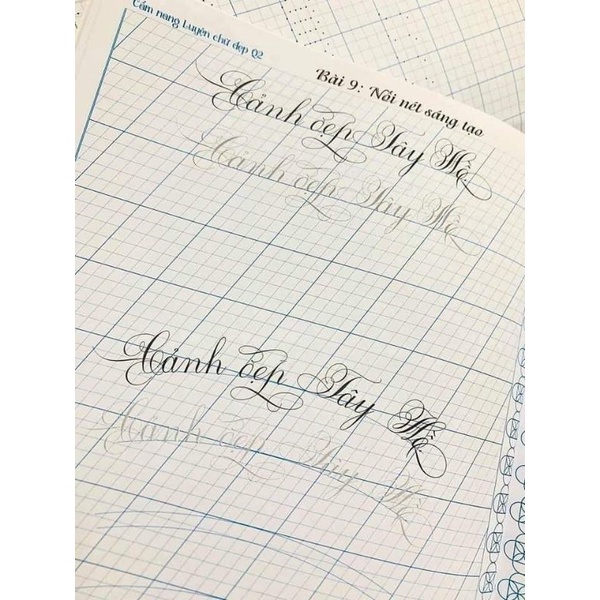 Cẩm nang Luyện chữ đẹp Q2
Bài 9: Nối nét sáng tạo
Cảnh đẹp Tây Hồ
Cảnh đẹp Tây Hồ
Cảnh đẹp Tây Hồ
Cảnh đẹp Tây Hồ